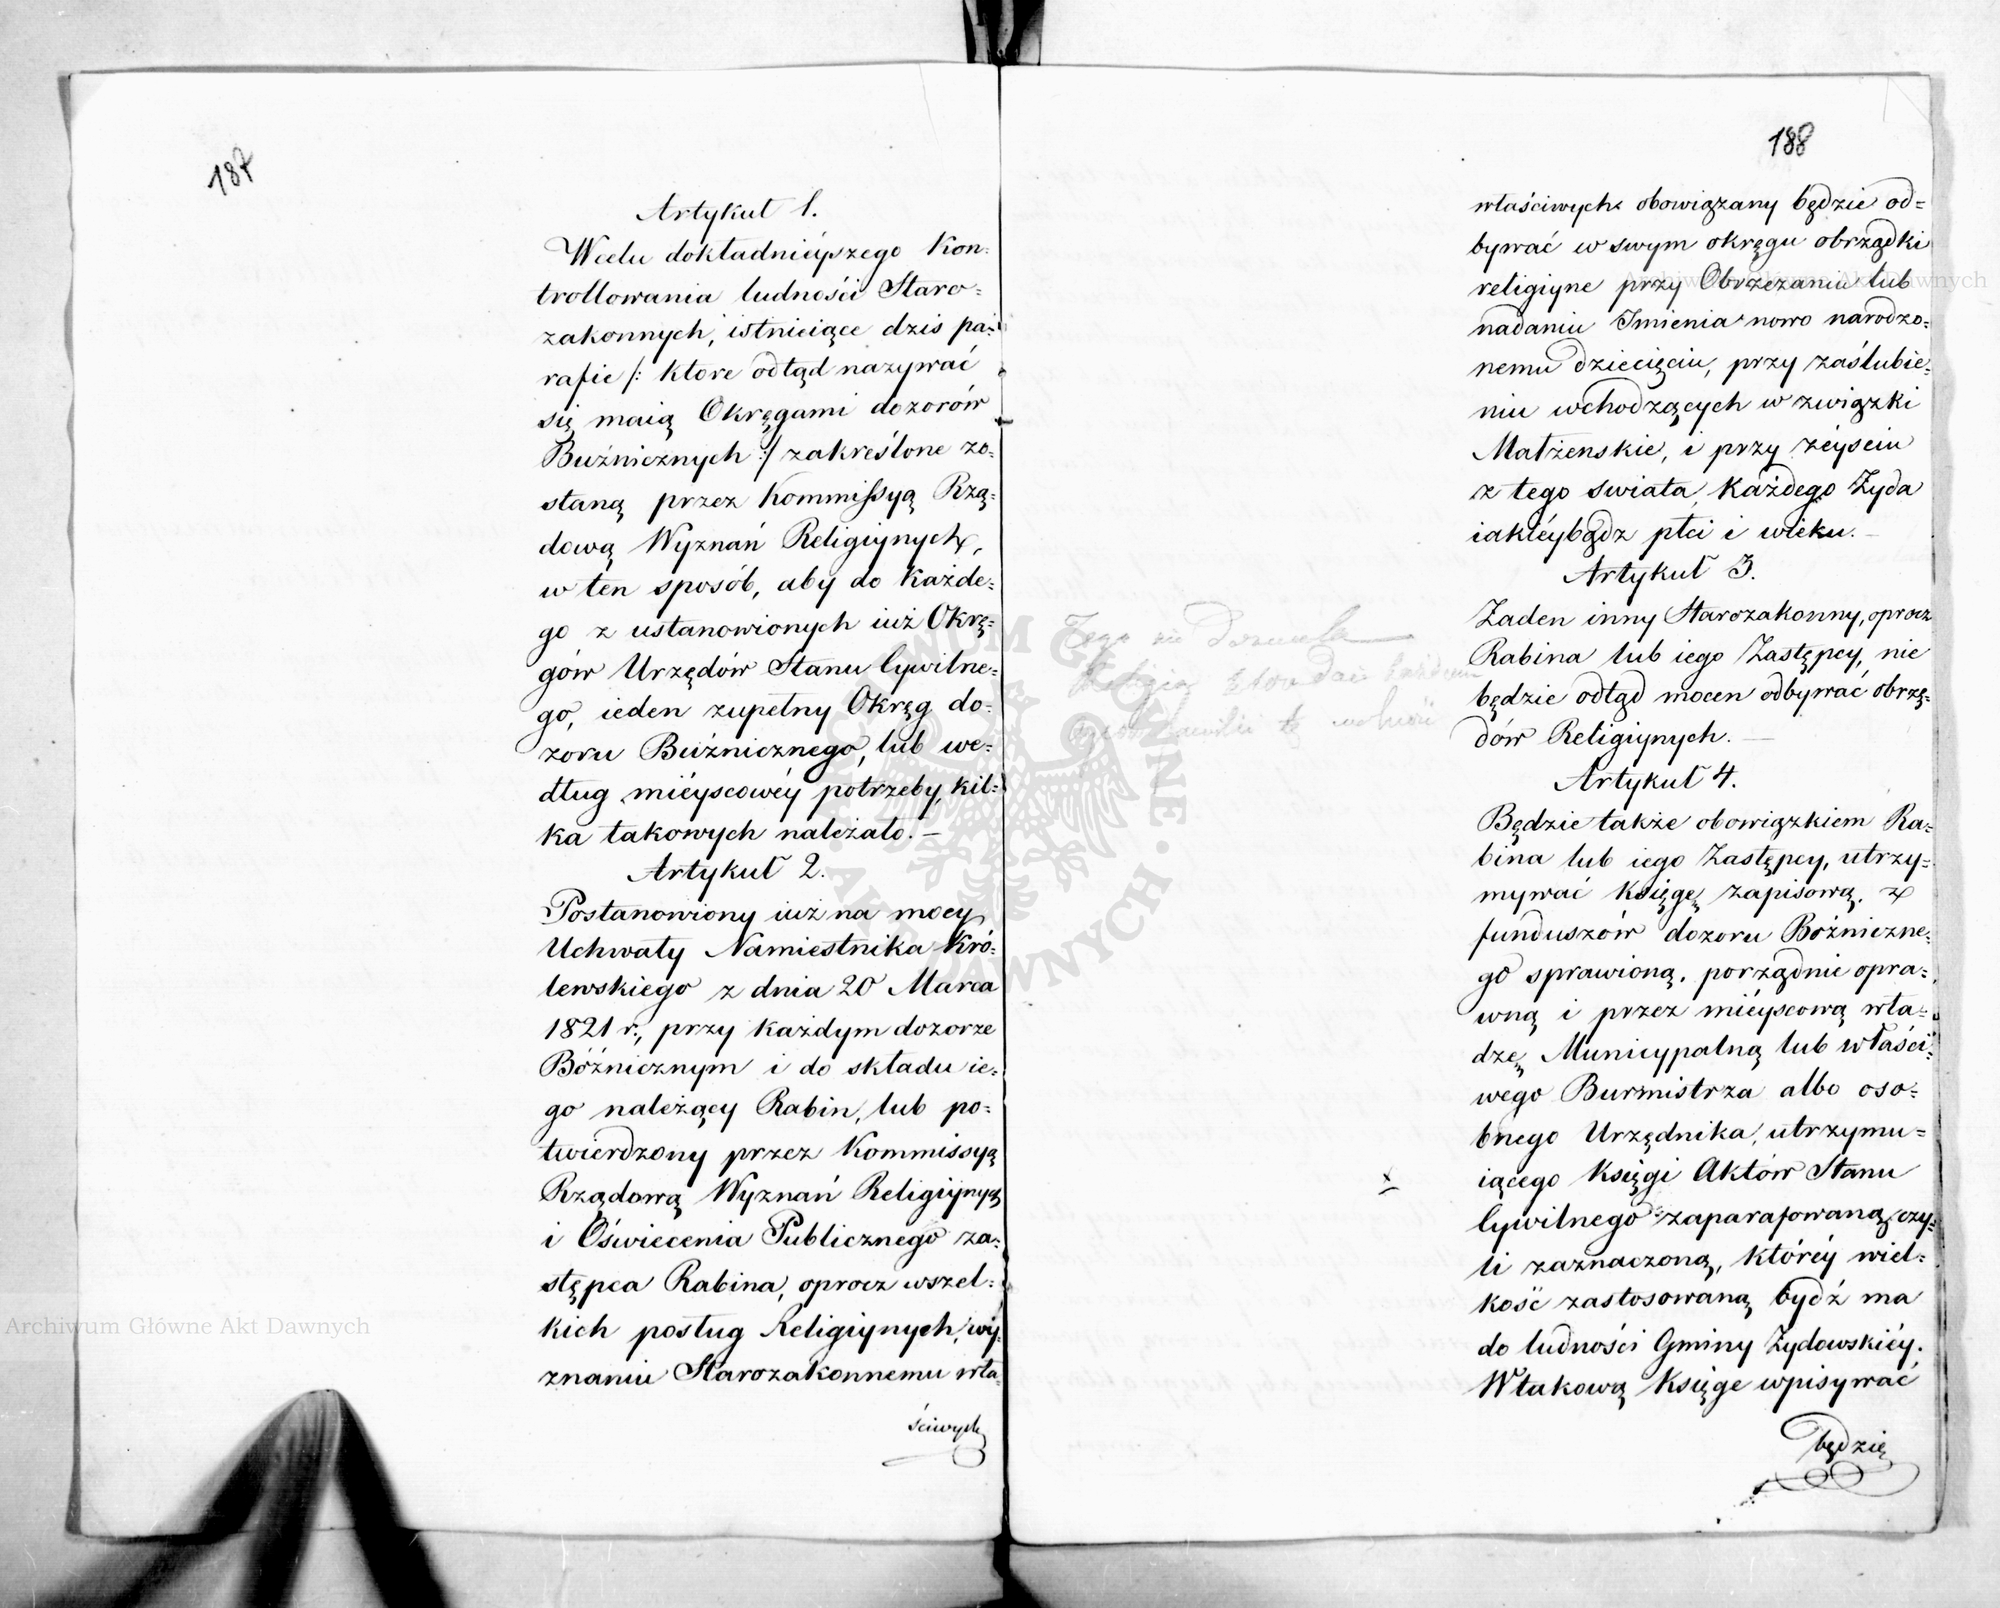 187
Artykuł 1.
Wcelu dokładnieyszego Kon-
trollowania ludności Staro-
zakonnych, istnieiące dzis pa-
rafie /: ktore odtąd nazywać
się maią Okręgami dozorów
Buźnicznych :/ zakreślone zo-
staną przez Kommissyą Rzą-
dową Wyznań Religiynych,
w ten sposób, aby do Każde-
go z ustanowionych iuż Okrę-
gów Urzędów Stanu Cywilne-
go, ieden zupełny Okręg do-
zoru Buźnicznego, lub we-
dług miéyscowéy potrzeby, kil-
ka takowych należało. –
Artykuł 2.
Postanowiony iuż na mocy
Uchwały Namiestnika Kró-
lewskiego z dnia 20 Marca
1821 r., przy każdym dozorze
Bóźnicznym i do składu ie-
go należący Rabin, lub po-
twierdzony przez Kommissyą
Rządową Wyznań Religiynych
i Oświecenia Publicznego za-
stępca Rabina, oprocz wszel-
kich posług Religiynych, wy-
znaniu Starozakonnemu wła-
ściwych
188
właściwych obowiązany będzie od-
bywać w swym okręgu obrządki
religiyne przy Obrzezaniu lub
nadaniu Imienia nowo narodzo-
nemu dziecięciu, przy zaślubie-
niu wchodzących w związki
Małżenskie, i przy zéysciu
z tego swiata, każdego Żyda
iakiéybądz płci i wieku. –
Artykuł 3.
Żaden inny Starozakonny, oprocz
Rabina lub iego Zastępcy, nie
będzie odtąd mocen odbywać obrzę-
dów Religiynych. –
Tego nie
Religią
tę
Artykuł 4.
Będzie także obowiązkiem Ra-
bina lub iego Zastępcy, utrzy-
mywać księgę zapisową, z
funduszów dozoru Bóżniczne-
go sprawioną, porządnie opra-
wną i przez miéyscową wła-
dzę Municypalną lub właści-
wego Burmistrza albo oso-
bnego Urzędnika, utrzymu-
iącego Księgi Aktów Stanu
Cywilnego zaparafowaną czy-
li zaznaczoną, któréy wiel-
kość zastosowaną bydź ma
do ludności Gminy Żydowskiéy.
Wtakową Księge wpisywać
będzie
Archiwum Główne Akt Dawnych
Archiwum Główne Akt Dawnych
ARCHIWUM GŁÓWNE AKT DAWNYCH